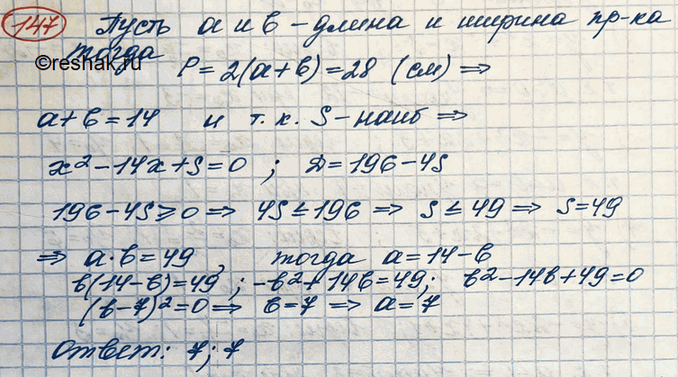 147 Пусть а и в - длина и ширина пр-ка
тогда
©reshak.ru
P = 2(а+в) = 28 (см) ⇒
а+в = 14 и т.к. S - наиб ⇒
x² - 14x + S = 0 ; Д = 196 - 4S
196 - 4S ≥ 0 ⇒ 4S ≤ 196 ⇒ S ≤ 49 ⇒ S = 49
⇒ а·в = 49, тогда а = 14 - в
в(14 - в) = 49 ; -в² + 14в = 49; в² - 14в + 49 = 0
(в - 7)² = 0 ⇒ в = 7 ⇒ а = 7
Ответ: 7; 7